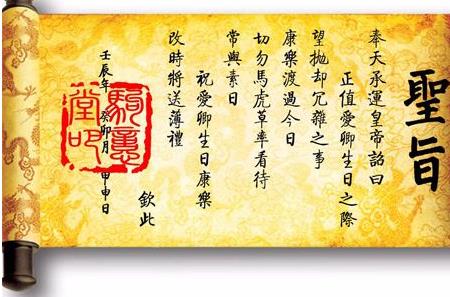 聖旨
奉天承運皇帝詔曰
正值愛卿生日之際
望拋却冗雜之事
康樂渡過今日
切勿馬虎草率看待
常與素日
祝愛卿生日康樂
改時將送薄禮
欽此
壬辰年 癸卯月 甲申日